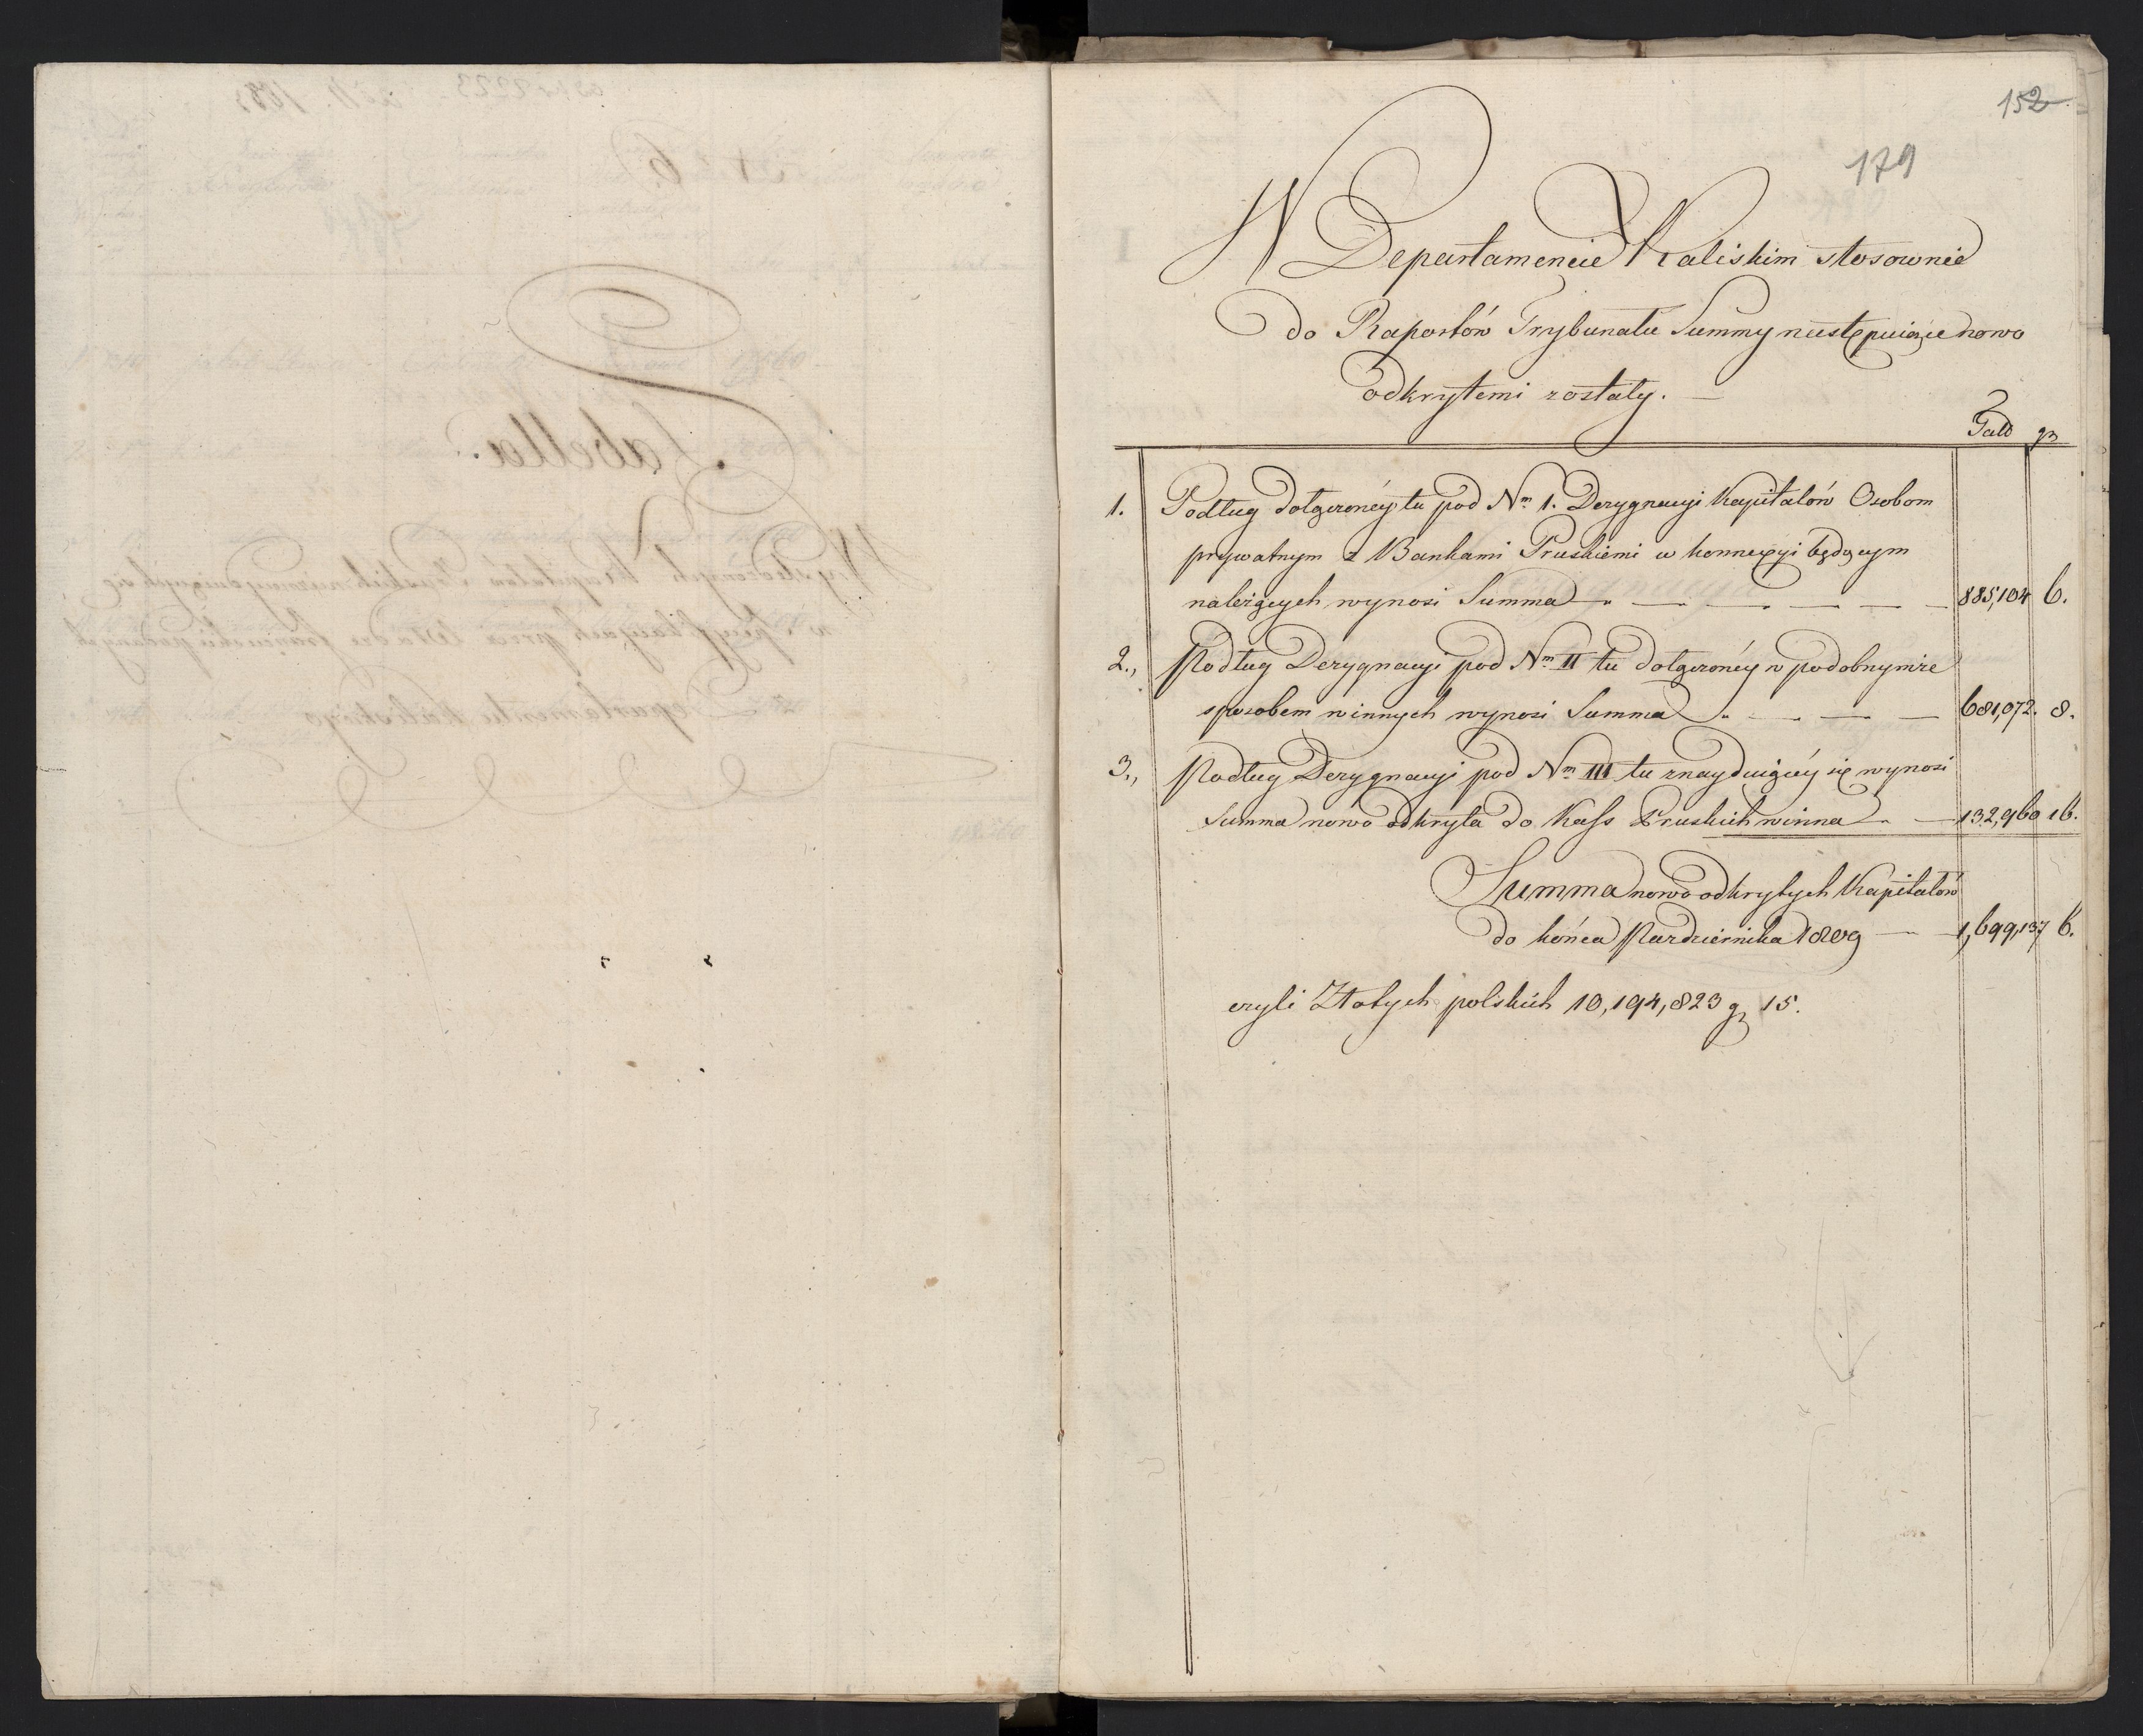 152
179
W Departamencie Kaliskim stosownie
do Raportów Trybunału Summy następuiące nowo
odkrytemi zostały. —
Tall gr
1. Podług dołączonéy tu pod Nm 1. Dezygnacyi Kapitałów Osobom
prywatnym z Bankami Pruskiemi w konnexyi będącym
należących wynosi Summa — — — — — — 885,104 6.
2., Podług Dezygnacyi pod Nm II tu dołączonéy w podobnymże
sposobem winnych wynosi Summa — — — — 681,072. 8.
3., Podług Dezygnacyi pod Nm III tu znayduiącéy się wynosi
Summa nowo odkryta do Kass Pruskich winna — — 132,960 16.
Summa nowo odkrytych Kapitałów
do końca Pazdziernika 1809 — — 1,699,137 6.
czyli Złotych polskich 10,194,823 gr 15.